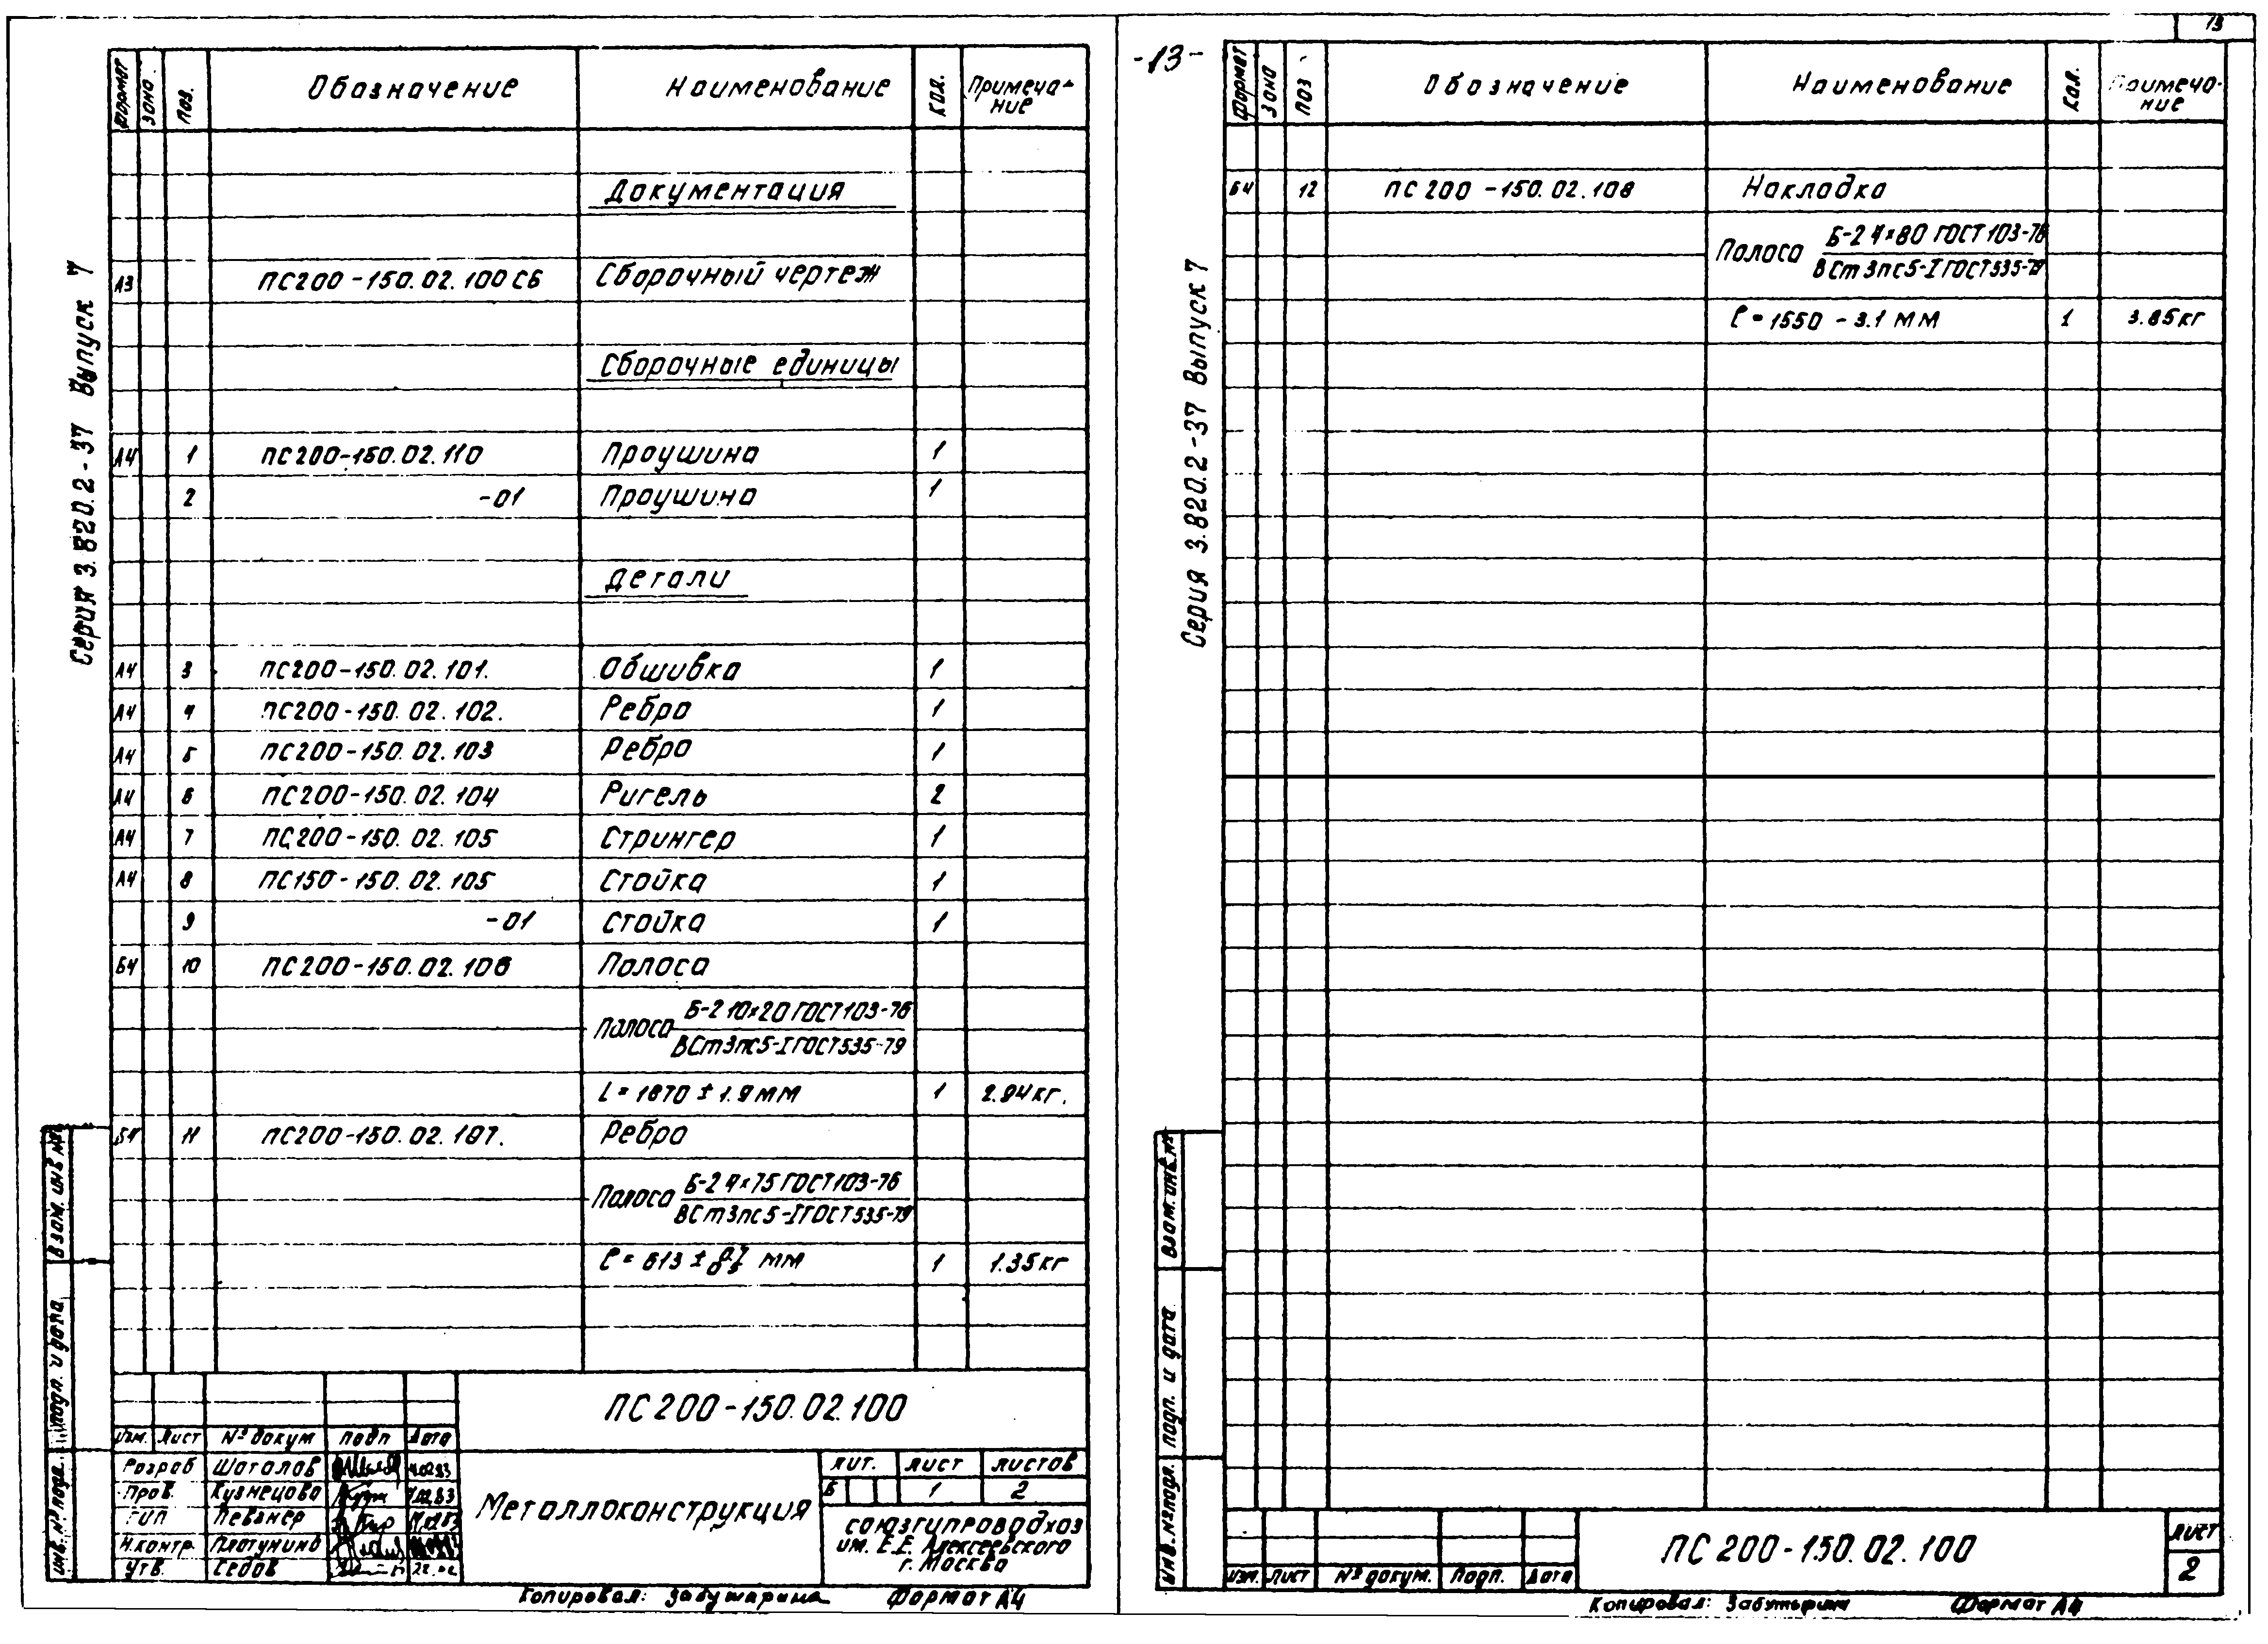 Серия 3.820.2-37 Выпуск 7
Формат Зона Поз. Обозначение Наименование Кол. Примеча-
ние
Документация
А3 ПС200-150.02.100 СБ Сборочный чертеж
Сборочные единицы
А4 1 ПС200-150.02.110 Проушина 1
2 -01 Проушина 1
Детали
А4 3 ПС200-150.02.101. Обшивка 1
А4 4 ПС200-150.02.102. Ребро 1
А4 5 ПС200-150.02.103 Ребро 1
А4 6 ПС200-150.02.104 Ригель 2
А4 7 ПС200-150.02.105 Стрингер 1
А4 8 ПС150-150.02.105 Стойка 1
9 -01 Стойка 1
Б4 10 ПС200-150.02.106 Полоса
Полоса Б-2 10×20 ГОСТ 103-76
ВСт3пс5-I ГОСТ 535-79
L = 1870 ± 1.9 мм 1 2.94 кг.
Б4 11 ПС200-150.02.107. Ребро
Полоса Б-2 4×75 ГОСТ 103-76
ВСт3пс5-I ГОСТ 535-79
ℓ = 613 ± мм 1 1.35 кг
ПС200-150.02.100
Изм. Лист № докум Подп Дата
Разраб Шаталов
Пров. Кузнецова
ГИП Певзнер
Н.контр Платунина
Утв. Седов
Металлоконструкция
Лит. Лист Листов
Б 1 2
Союзгипроводхоз
им. Е.Е. Алексеевского
г. Москва
Инв. № подл. Подп. и дата Взам. инв №
Копировал: Забутырина Формат А4
-13-
13
Серия 3.820.2-37 Выпуск 7
Формат Зона Поз Обозначение Наименование Кол. Примеча-
ние
Б4 12 ПС200-150.02.108 Накладка
Полоса Б-2 4×80 ГОСТ 103-76
ВСт3пс5-I ГОСТ 535-79
ℓ = 1550 - 3.1 мм 1 3.85 кг
Инв. № подл. Подп. и дата Взам. инв. №
Изм. Лист № докум. Подп. Дата
ПС200-150.02.100
Лист
2
Копировал: Забутырина Формат А4